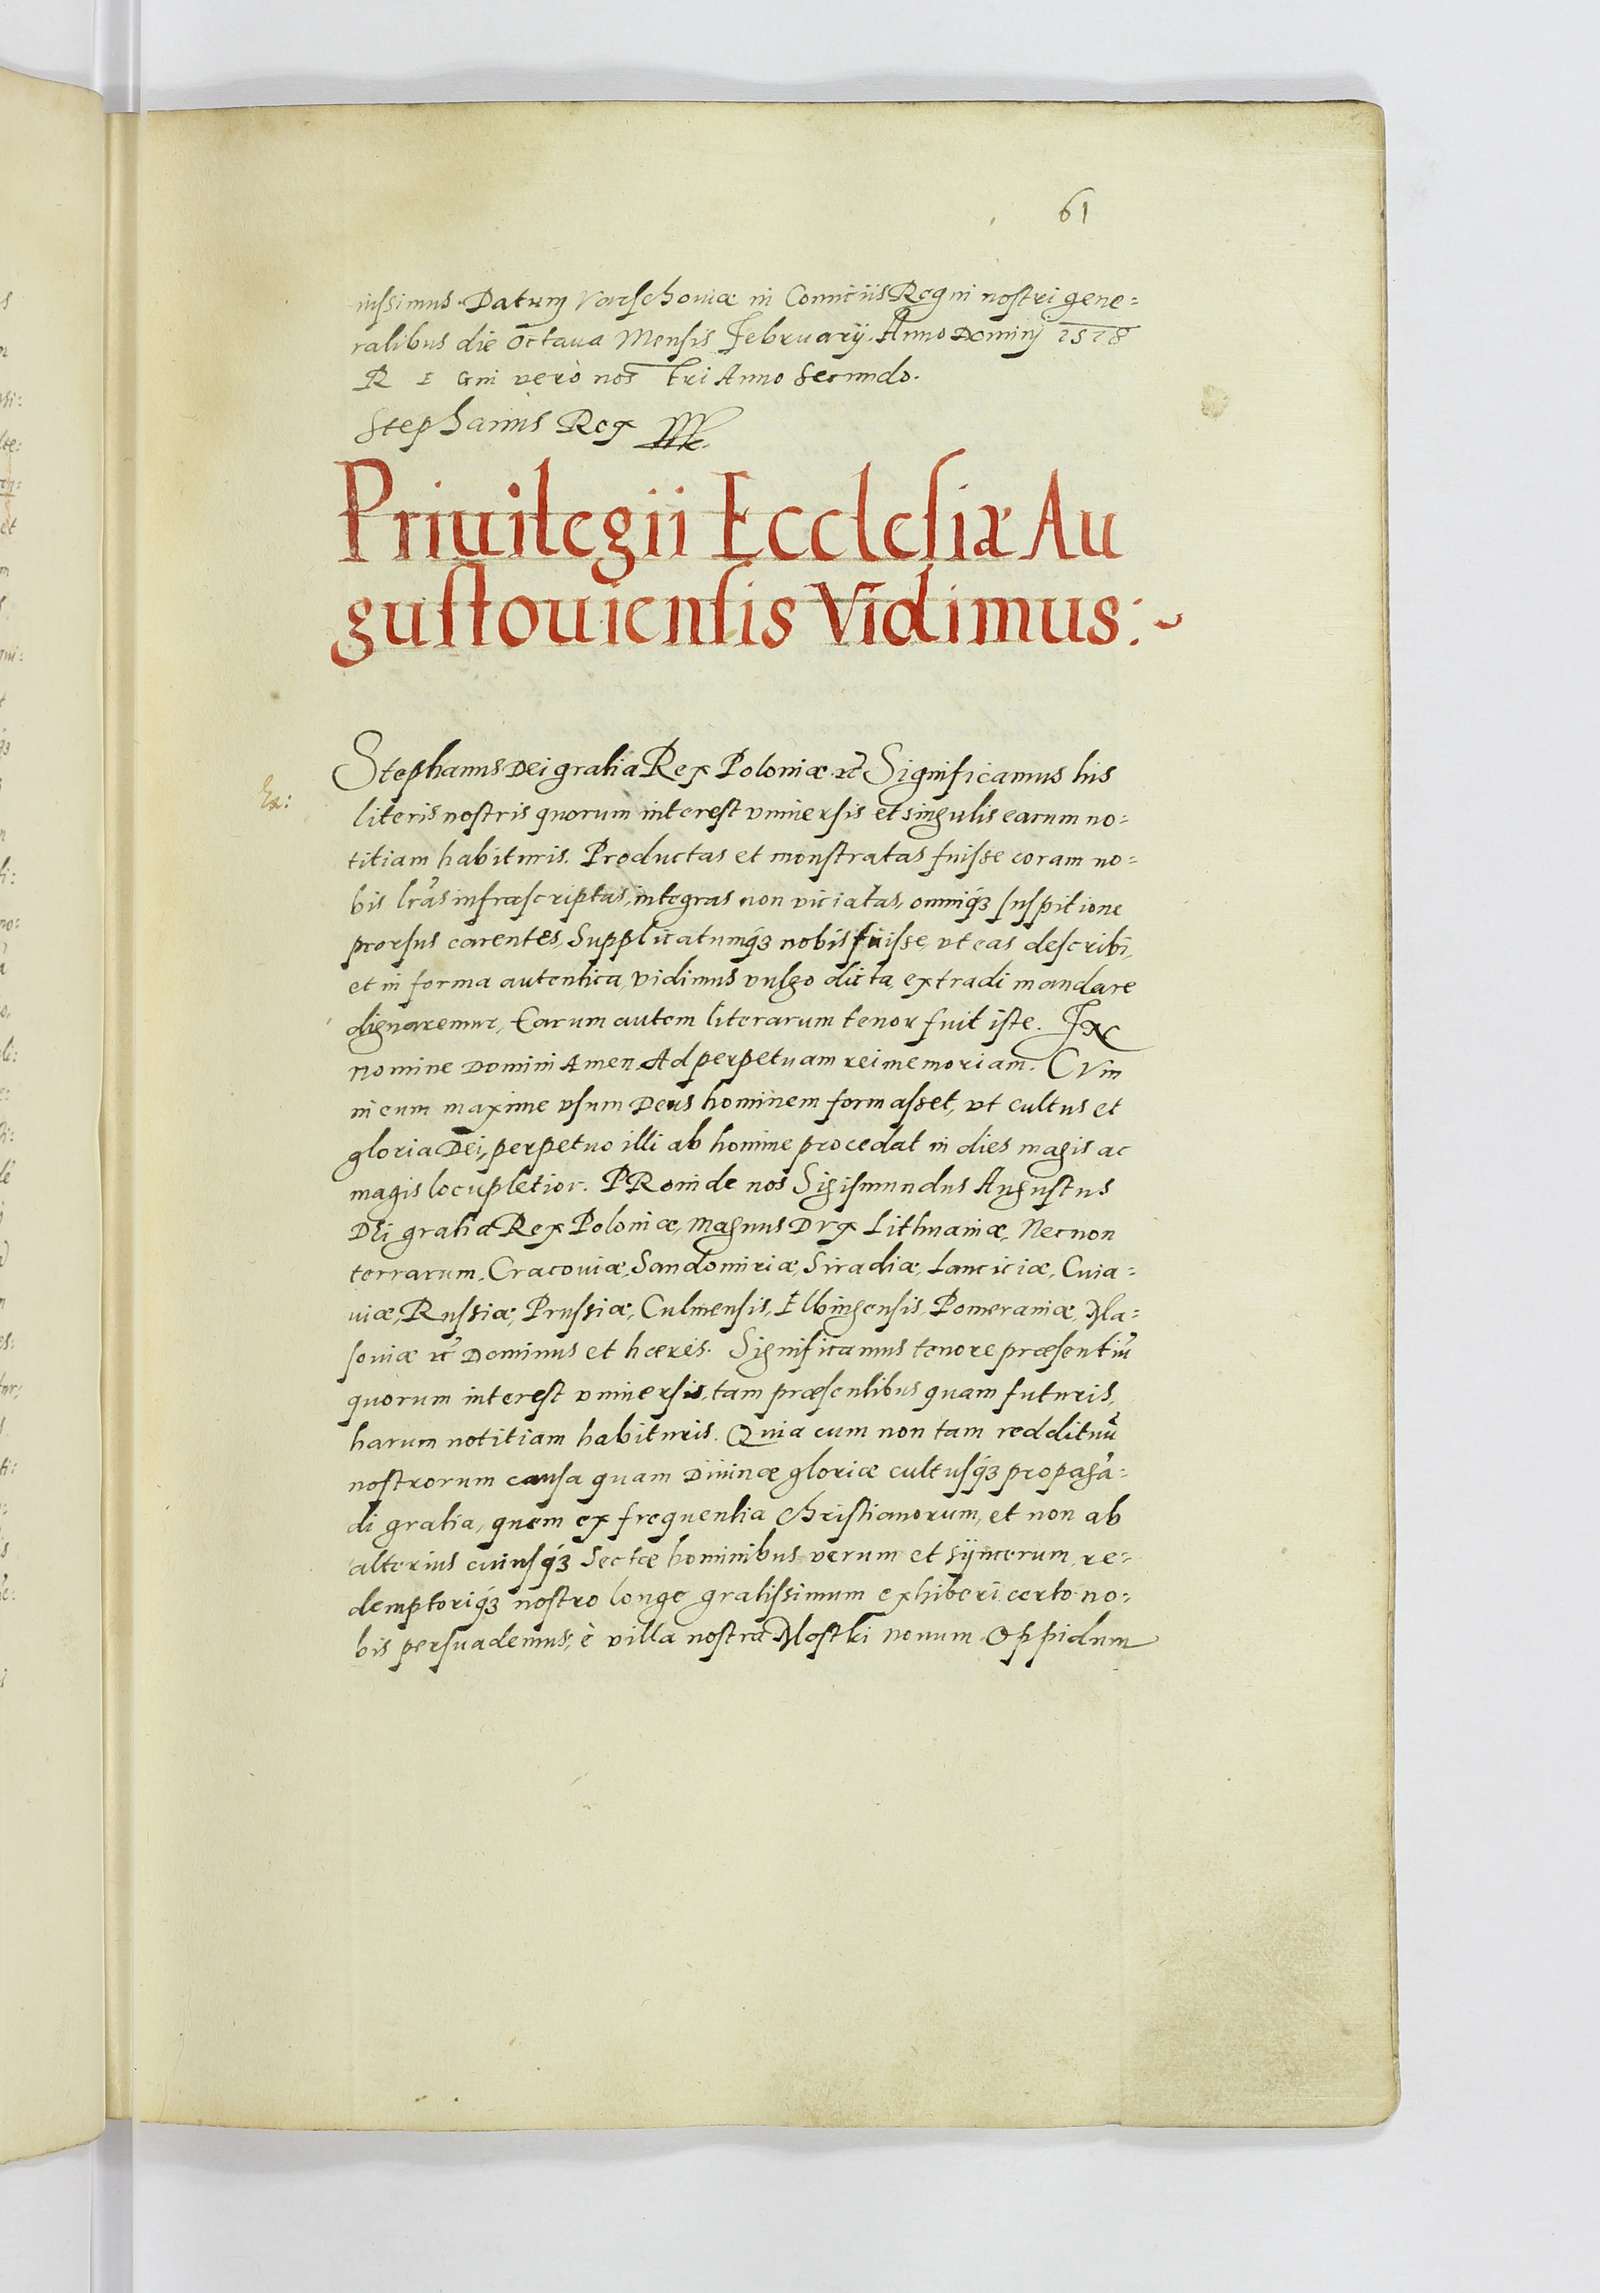 61
iussimus. Datum Varschouiæ in Comiciis Regni nostri gene=
ralibus die octaua Mensis February. Anno Dominj 1578
REGni verò nostri Anno Secundo.
Stephanus Rex
Priuilegii Ecclesiæ Au
gustouiensis Vidimus:~
Stephanus Dei gratia Rex Poloniæ etc̃ Significamus his
Ex:
literis nostris quorum interest vniuersis et singulis earum no=
titiam habituris. Productas et monstratas fuisse coram no=
bis lrãs infrascriptas, integras non viciatas, omniq́ꝫ suspitione
prorsus carentes, Supplicatumq́ꝫ nobis fuisse, vt eas describi,
et in forma autentica, vidimus vulgo dicta, extradi mandare
dignaremur, Earum autem literarum tenor fuit iste. In
nomine Domini Amen. Ad perpetuam rei memoriam. CVm
in eum maxime vsum Deus hominem formasset, vt cultus et
gloria Dei, perpetuo illi ab homine procedat in dies magis ac
magis locupletior. PRoinde nos Sigismundus Augustus
Dei gratia Rex Poloniæ, Magnus Dvx Lithuaniæ, Necnon
terrarum, Cracouiæ, Sandomiriæ, Siradiæ, Lanciciæ, Cuia=
uiæ, Russiæ, Prussiæ, Culmensis, Elbingensis, Pomeraniæ, Ma=
souiæ etc̃ Dominus et hæres. Significamus tenore præsentiũ
quorum interest vniuersis, tam præsentibus quam futuris,
harum notitiam habituris. Quia cum non tam reddituũ
nostrorum causa quam Diuinæ gloriæ cultusq́ꝫ propagã=
di gratia, quem ex frequentia Christianorum, et non ab
alterius cuiusq́ꝫ Sectæ hominibus verum et syncerum, re=
demptoriq́ꝫ nostro longe gratissimum exhiberi certo no=
bis persuademus, è villa nostra Mostki nouum Oppidum